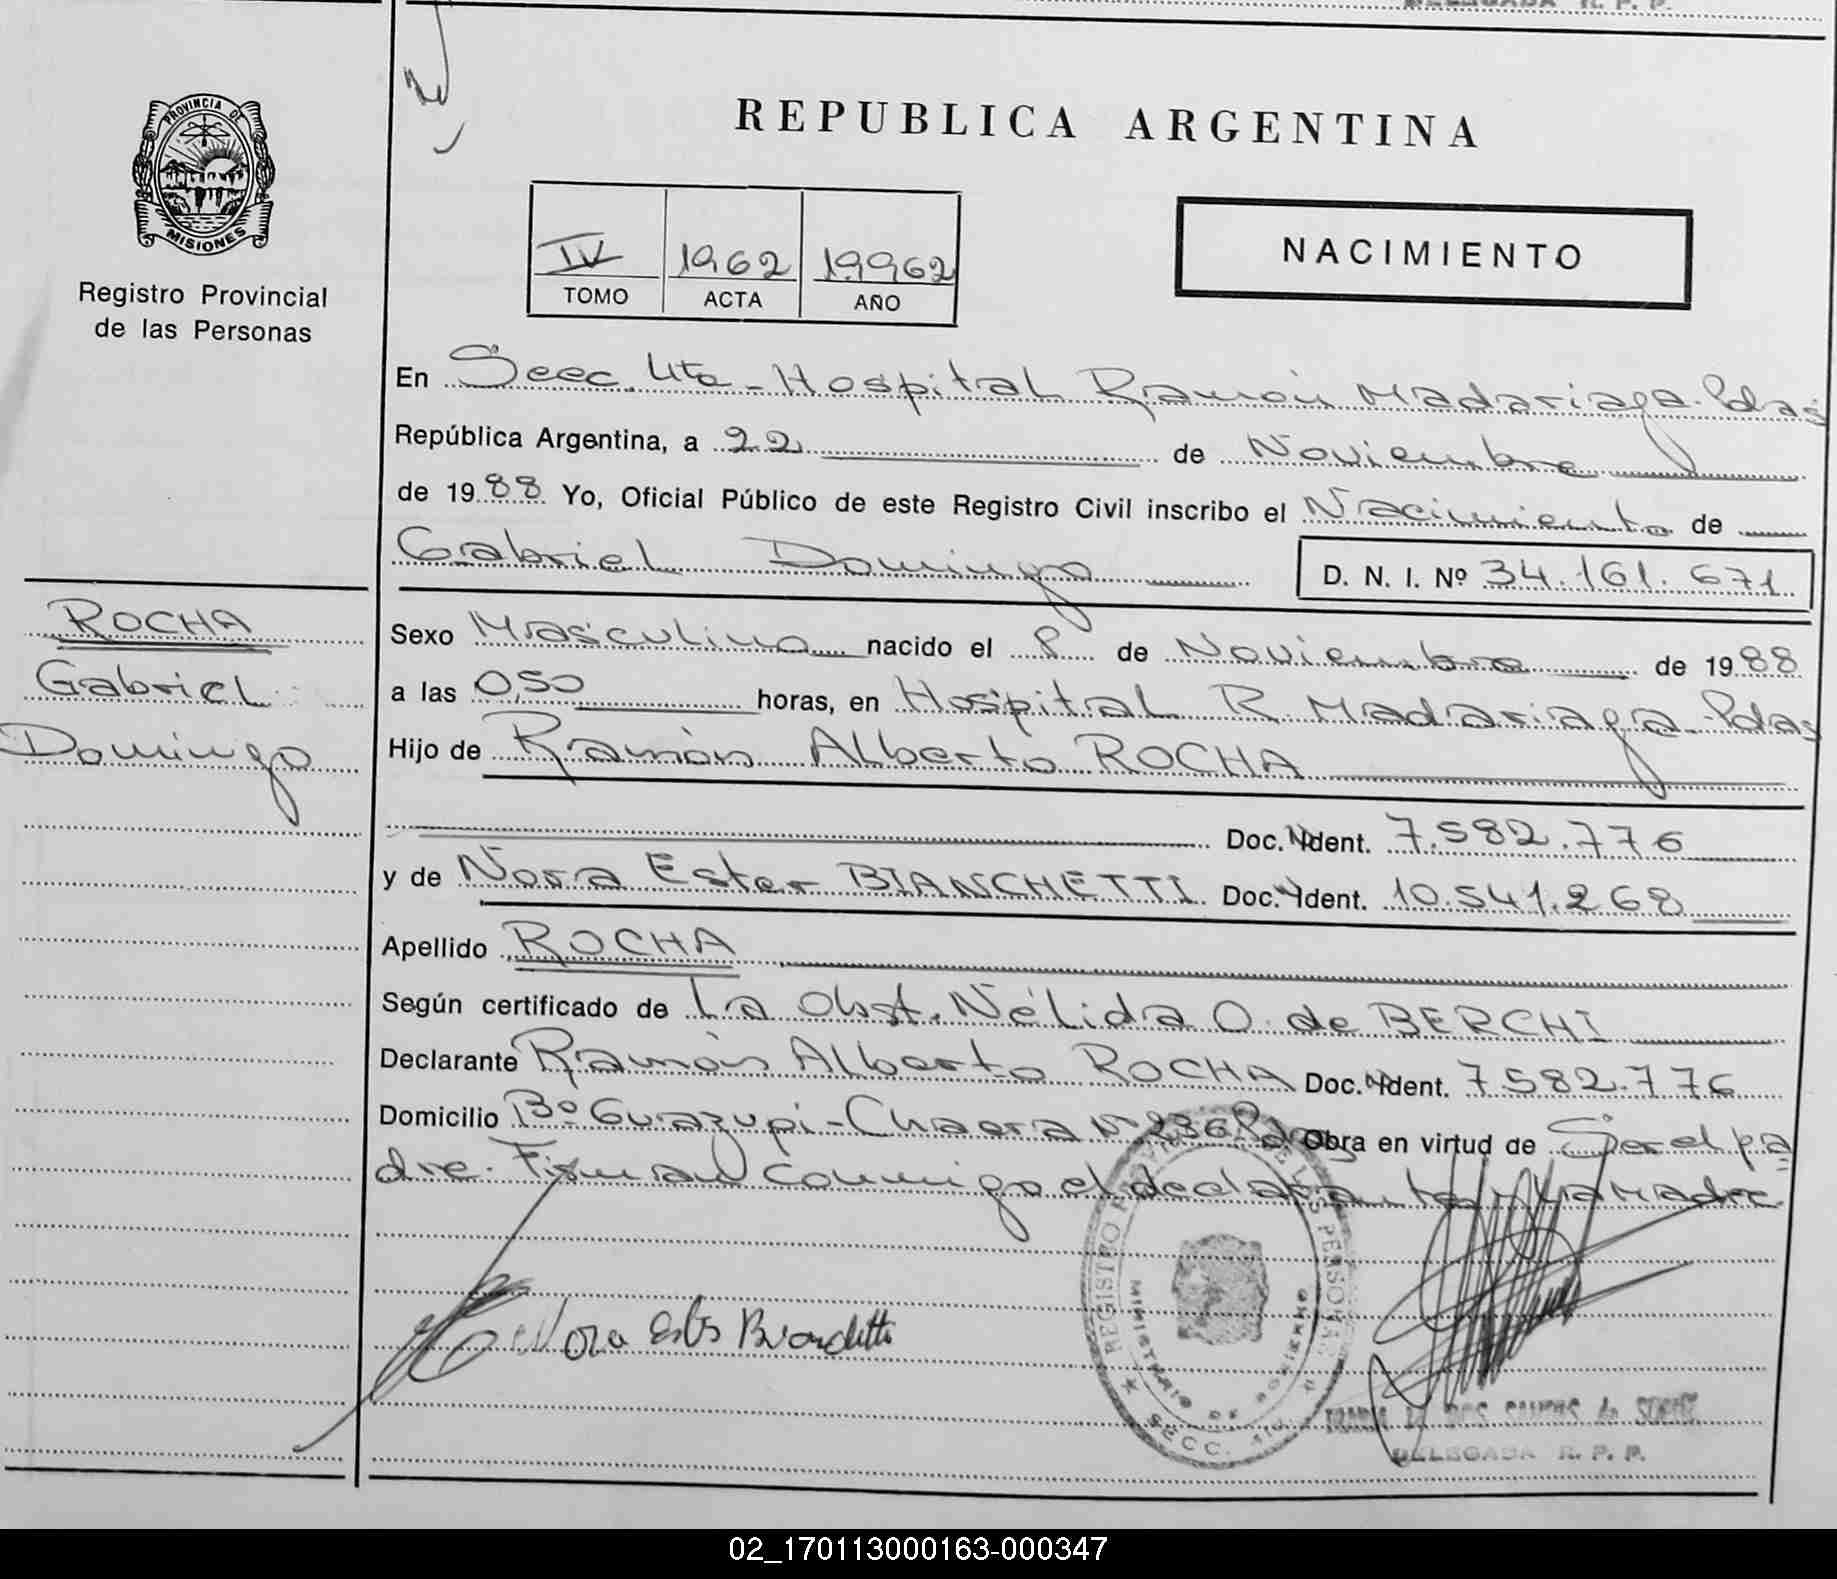 DELEGADA R. P. P.
PROVINCIA DE
MISIONES
Registro Provincial
de las Personas
REPUBLICA ARGENTINA
IV 1962 19962
TOMO ACTA AÑO
NACIMIENTO
En Secc. 4ta - Hospital Ramón Madariaga. Pdas
República Argentina, a 22 de Noviembre
de 1988 Yo, Oficial Público de este Registro Civil inscribo el Nacimiento de
Gabriel Domingo
D. N. I. Nº 34.161.671
ROCHA
Gabriel
Domingo
Sexo Masculino nacido el 8 de Noviembre de 1988
a las 0,50 horas, en Hospital R. Madariaga - Pdas
Hijo de Ramón Alberto ROCHA
Doc. Ident. 7.582.776
y de Nora Ester BIANCHETTI Doc. Ident. 10.541.268
Apellido ROCHA
Según certificado de La Obst. Nélida O. de BERCHI
Declarante Ramón Alberto ROCHA Doc. Ident. 7.582.776
Domicilio Bº Guazupi - Chacra Nº 236 Pdas Obra en virtud de Ser el pa
dre. Firman conmigo el declarante y la madre
Nora Ester Bianchetti
REGISTRO PROVINCIAL DE LAS PERSONAS
MINISTERIO DE GOBIERNO
SECC. 4ta
DOS SANTOS de
DELEGADA R. P. P.
02_170113000163-000347